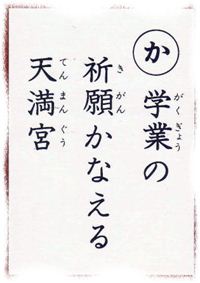 か 学業の
祈願かなえる
天満宮
がくぎょう
きがん
てんまんぐう